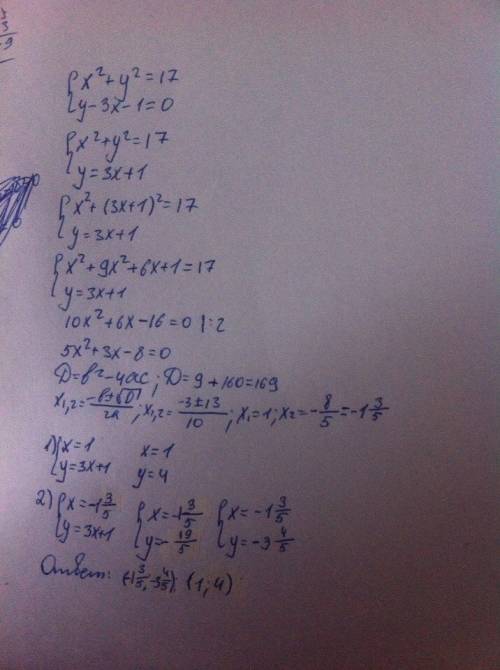 3
9
{x²+y²=17
{y-3x-1=0
{x²+y²=17
{y=3x+1
{x²+(3x+1)²=17
{y=3x+1
{x²+9x²+6x+1=17
{y=3x+1
10x²+6x-16=0 |:2
5x²+3x-8=0
D=b²-4ac; D=9+160=169
x₁,₂=(-b±√D)/2a; x₁,₂=(-3±13)/10; x₁=1; x₂=-8/5=-1 3/5
1) {x=1 x=1
{y=3x+1 y=4
2) {x=-1 3/5 {x=-1 3/5 {x=-1 3/5
{y=3x+1 {y=-19/5 {y=-3 4/5
Ответ: (-1 3/5; -3 4/5) (1; 4)